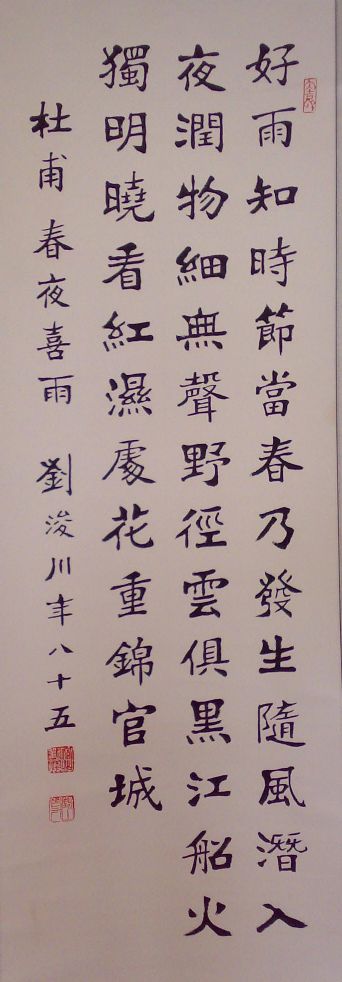 好雨知時節當春乃發生隨風潛入
夜潤物細無聲野徑雲俱黑江船火
獨明曉看紅濕處花重錦官城
杜甫 春夜喜雨 劉浚川年八十五